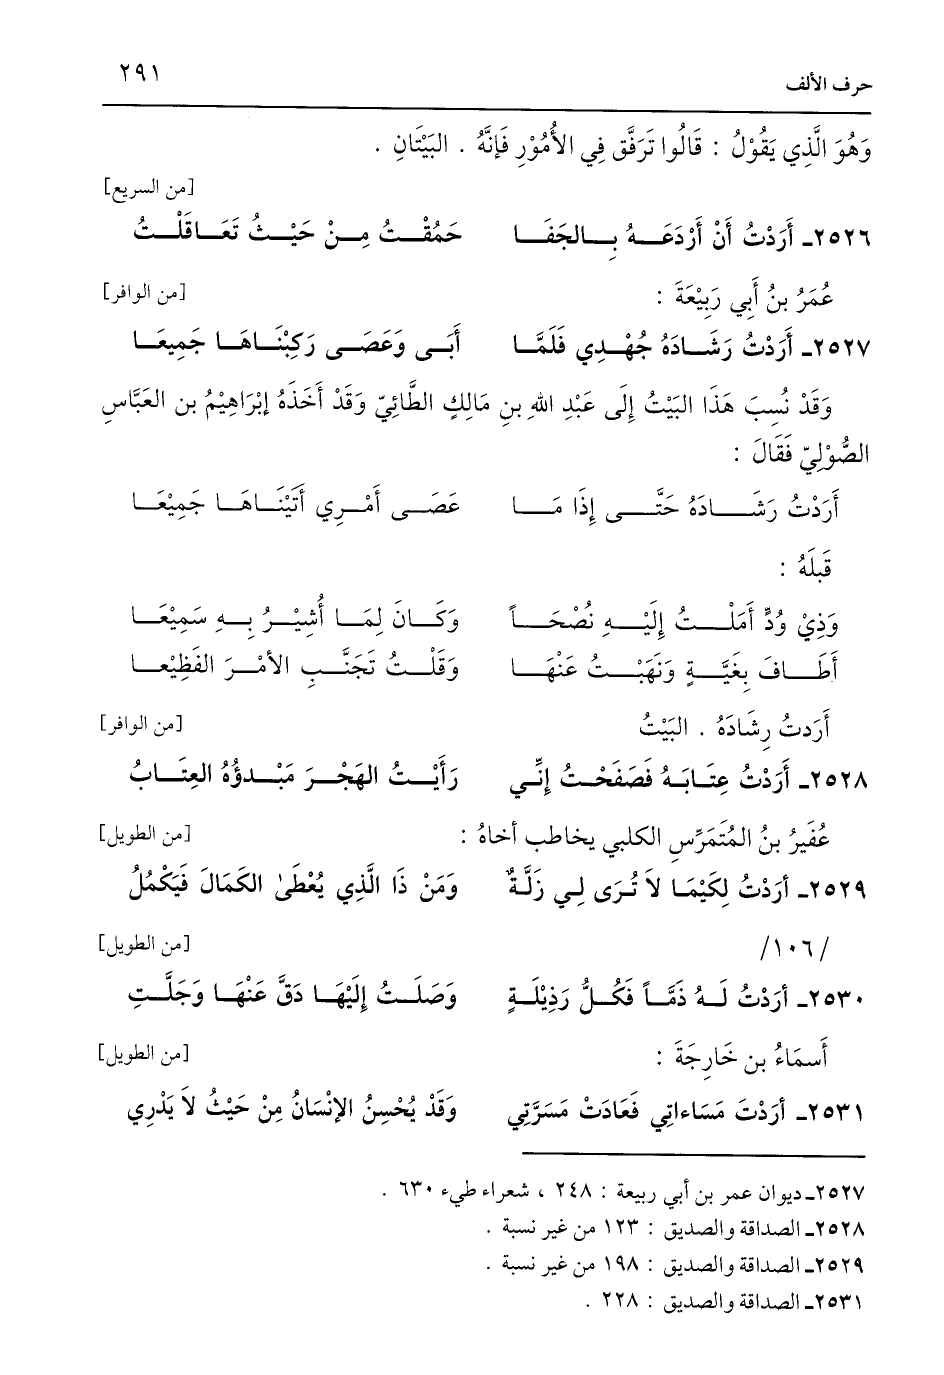 حرف الألف ٢٩١
وَهُوَ الَّذِي يَقُوْلُ : قَالُوا تَرَفَّق فِي الأُمُوْرِ فَإنَّهُ . البَيْتَانِ .
[من السريع]
٢٥٢٦ـ أَرَدْتُ أَنْ أَرْدَعَــهُ بِــالجَفَــا حَمُقْــتُ مِــنْ حَيْــثُ تَعَــاقَلْــتُ
عُمَرُ بنُ أَبِي رَبِيْعَةَ : [من الوافر]
٢٥٢٧ـ أَرَدْتُ رَشَــادَهُ جُهْــدِي فَلَمَّا أَبَــى وَعَصَــى رَكِبْنَــاهَــا جَمِيعَــا
وَقَدْ نُسِبَ هَذَا البَيْتُ إِلَى عَبْدِ اللهِ بنِ مَالِكٍ الطَّائِيّ وَقَدْ أَخَذَهُ إبْرَاهِيْمُ بن العَبَّاسِ
الصُّوْلِيّ فَقَالَ :
أَرَدْتُ رَشَــادَهُ حَتَّــى إِذَا مَــا عَصَــى أَمْــرِي أَتَيْنَــاهَــا جَمِيْعَــا
قَبلَهُ :
وَذِيْ وُدٍّ أَمَلْــتُ إِلَيْــهِ نُصْحَــاً وَكَــانَ لِمَــا أُشِيْــرُ بِــهِ سَمِيْعَــا
أَطَــافَ بِغَيَّــةٍ وَنَهَيْــتُ عَنْهَــا وَقَلْــتُ تَجَنَّــبِ الأمْــرَ الفَظِيْعــا
أَرَدتُ رِشَادَهُ . البَيْتُ [من الوافر]
٢٥٢٨ـ أَرَدْتُ عِتَــابَــهُ فَصَفَحْــتُ إنِّــي رَأَيْــتُ الهَجْــرَ مَبْــدؤُهُ العِتَــابُ
عُفَيرُ بنُ المُتَمَرِّسِ الكلبي يخاطب أخاهُ : [من الطويل]
٢٥٢٩ـ أرَدْتُ لِكَيْمَــا لاَ تُرَى لِــي زَلَّــةٌ وَمَنْ ذَا الَّذِي يُعْطَىٰ الكَمَالَ فَيَكْمُلُ
/١٠٦/ [من الطويل]
٢٥٣٠ـ أرَدْتُ لَــهُ ذَمَّــاً فَكُــلُّ رَذِيْلَــةٍ وَصَلَــتُ إِلَيْهَــا دَقَّ عَنْهَــا وَجَلَّــتِ
أَسمَاءُ بن خَارِجَةَ : [من الطويل]
٢٥٣١ـ أرَدْتَ مَسَاءاتِي فَعَادَتْ مَسَرَّتِي وَقَدْ يُحْسِنُ الإنْسَانُ مِنْ حَيْثُ لاَ يَدْرِي
٢٥٢٧ـ ديوان عمر بن أبي ربيعة : ٢٤٨ ، شعراء طيء ٦٣٠ .
٢٥٢٨ـ الصداقة والصديق : ١٢٣ من غير نسبة .
٢٥٢٩ـ الصداقة والصديق : ١٩٨ من غير نسبة .
٢٥٣١ـ الصداقة والصديق : ٢٢٨ .